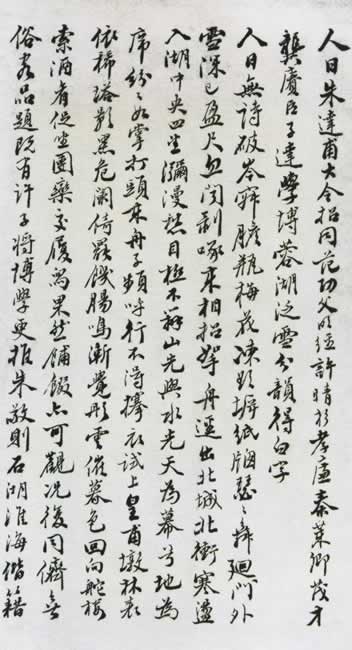 人日朱達甫大令招同范功父明經許晴杉孝廉秦葉卿茂才
龔賡臣子達學博蓉湖泛雪分韻得白字
人日無詩破岑寂膽瓶梅花凍欲坼紙牕瑟瑟舞迴門外
雪深已盈尺忽聞剝啄來相招拏舟遥出北城北衝寒盪
入湖中央四望瀰漫愁目極不辨山光與水光天為幕兮地為
席紛紛如掌打頭來舟子頻呼行不得攓衣試上皇甫墩林表
依稀塔影黑危闌倚罷饑腸鳴漸覺彤雲催暮色回向舵樓
索酒肴促坐團欒交履舄果然餔餟亦可觀況復同儕無
俗客品題既有許子將博學更推朱敬則石湖淮海偕籍